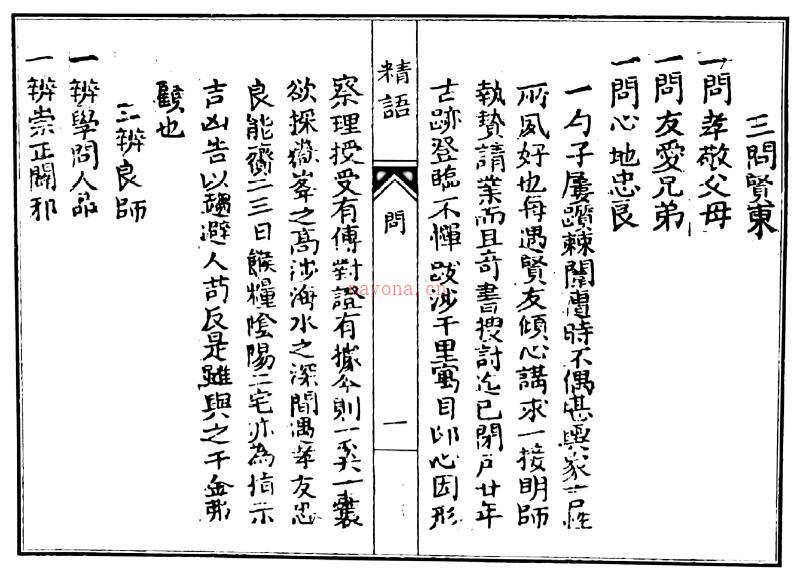 三問賢東
一問孝敬父母
一問友愛兄弟
一問心地忠良
一勺子屢躓棘闈遭時不偶堪輿家言性
所夙好也每遇賢友傾心講求一接明師
執贄請業而且奇書搜討迄已閉戶廿年
古跡登臨不憚跋涉千里寓目印心因形
精語
問
一
察理授受有傳對證有據本則一裘一褰
欲探嶽峯之高涉海水之深間遇孝友忠
良能齎二三日餱糧陰陽二宅亦為指示
吉凶告以趨避人苟反是雖與之千金弗
顧也
三辨良師
一辨學問人品
一辨崇正闢邪
nayona.cn